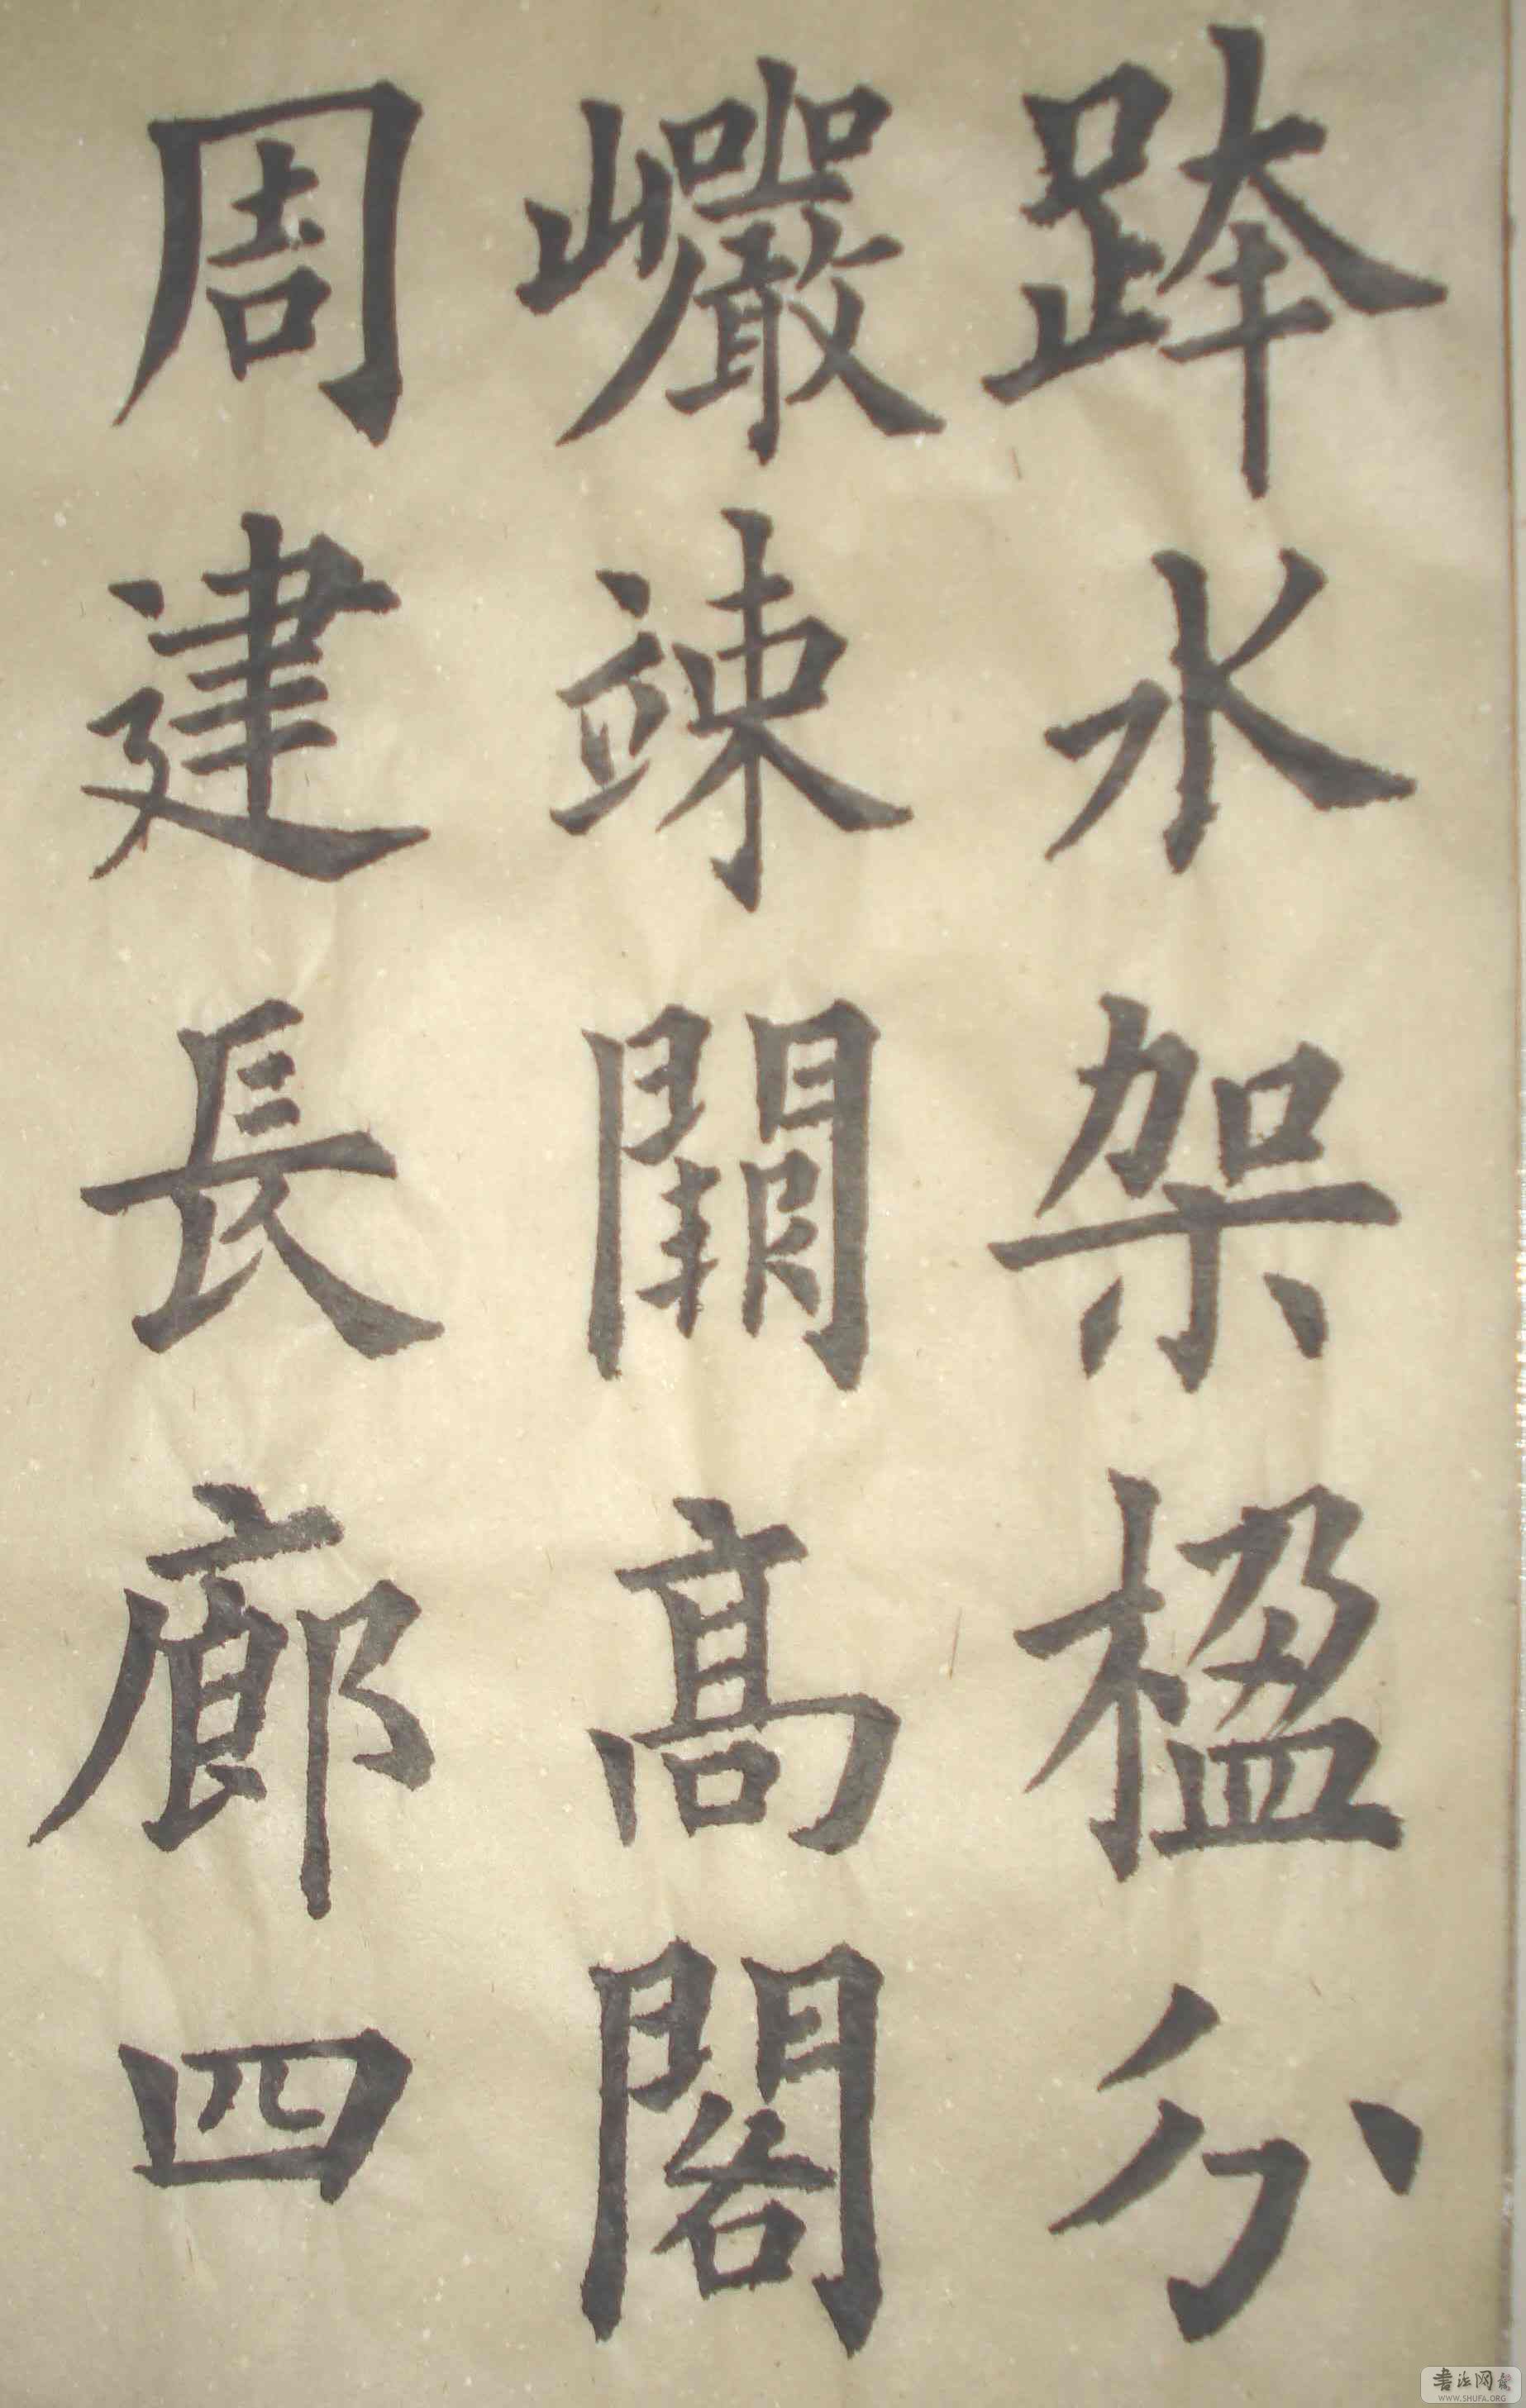 跨水架楹分
巖竦闕高閣
周建長廊四
書法网
WWW.SHUFA.ORG